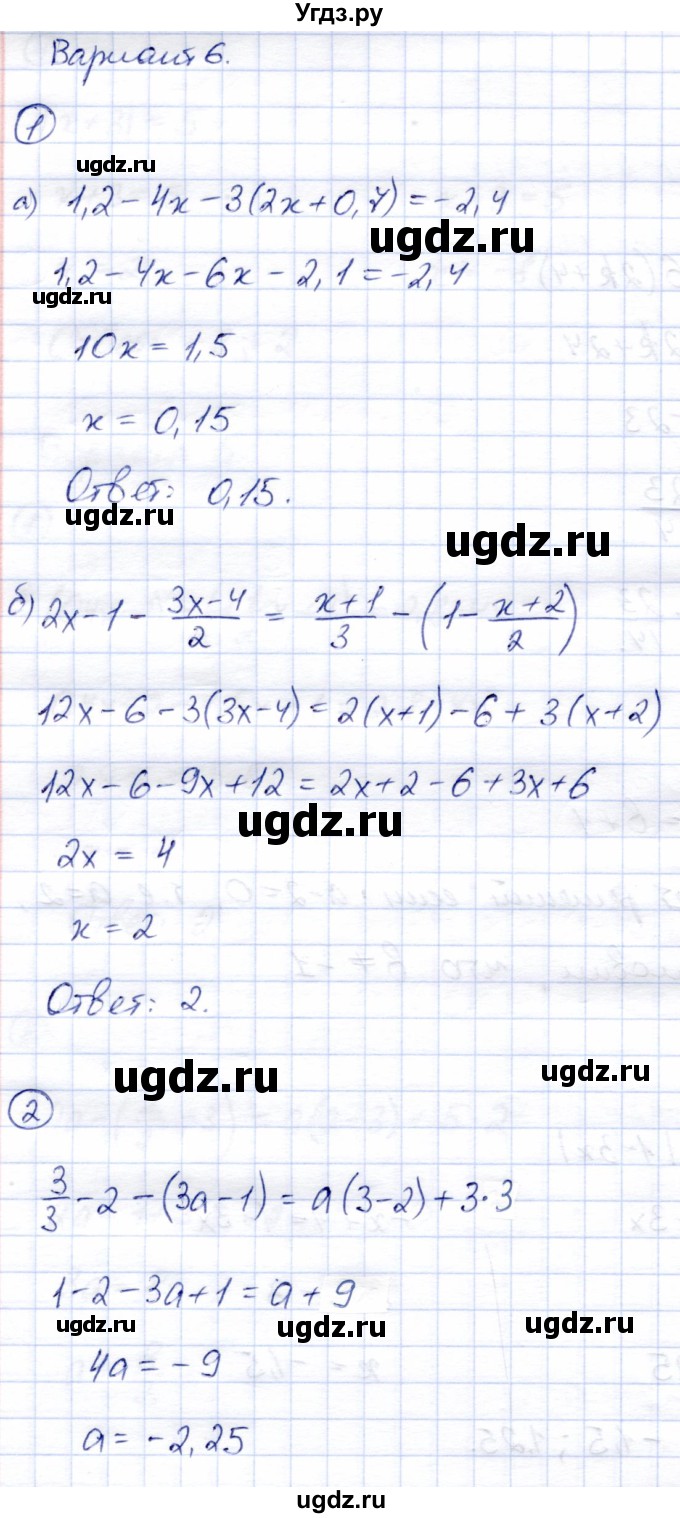 Угдз.ру
Вариант 6.
1
ugdz.ru
а) 1,2 - 4x - 3(2x + 0,7) = -2,4
ugdz.ru
1,2 - 4x - 6x - 2,1 = -2,4
ugdz.ru
10x = 1,5
x = 0,15
Ответ: 0,15.
ugdz.ru
ugdz.ru
б) 2x - 1 - (3x-4)/2 = (x+1)/3 - (1 - (x+2)/2)
12x - 6 - 3(3x-4) = 2(x+1) - 6 + 3(x+2)
12x - 6 - 9x + 12 = 2x + 2 - 6 + 3x + 6
ugdz.ru
2x = 4
x = 2
Ответ: 2.
ugdz.ru
ugdz.ru
2
3/3 - 2 - (3a - 1) = a(3-2) + 3·3
1 - 2 - 3a + 1 = a + 9
ugdz.ru
ugdz.ru
ugdz.ru
4a = -9
a = -2,25
ugdz.ru